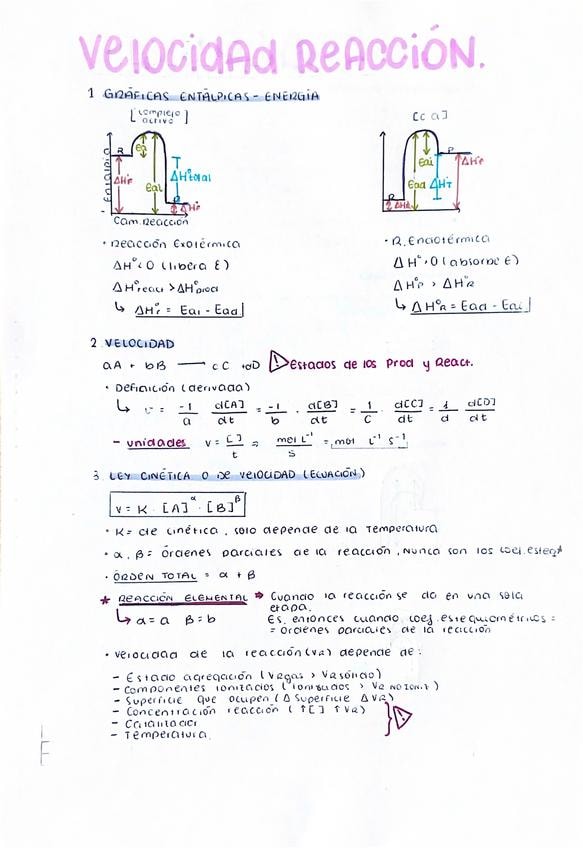 VELOCIDAD REACCIÓN.
1 GRÁFICAS ENTÁLPICAS - ENERGÍA
[complejo activo]
[C a]
R
Ea
Eai
ΔH°total
ΔH°r
P
ΔH°r
Entalpia
Cam. Reacción
P
Eai
Ead
ΔH°T
ΔH°r
R
ΔH°R
· Reacción Exotérmica
ΔH° < 0 (libera E)
ΔH°reac > ΔH°prod
↳ ΔH°r = Eai - Ead
· R. Endotérmica
ΔH° > 0 (absorbe E)
ΔH°P > ΔH°R
↳ ΔH°R = Ead - Eai
2 VELOCIDAD
aA + bB —— cC + dD ⚠ Estados de los Prod y React.
· Definición (derivada)
↳ v = -1/a d[A]/dt = -1/b · d[B]/dt = 1/c · d[C]/dt = 1/d d[D]/dt
- unidades v = [ ]/t = mol L⁻¹/s = mol L⁻¹ s⁻¹
3 LEY CINÉTICA O DE VELOCIDAD (ECUACIÓN)
v = K · [A]^α · [B]^β
· K = cte cinética, solo depende de la Temperatura
· α, β = órdenes parciales de la reacción, Nunca son los coef. esteq
· ORDEN TOTAL = α + β
* REACCIÓN ELEMENTAL ➔ Cuando la reacción se da en una sola etapa.
↳ α = a β = b
Es, entonces cuando coef. estequiométricos =
= órdenes parciales de la reacción
· Velocidad de la reacción (VR) depende de:
- Estado agregación (VRgas > VRsólido)
- Componentes ionizados (ionizados > VR NO IONIZ)
- Superficie que ocupen (Δ Superficie Δ VR)
- Concentración reacción (↑[ ] ↑VR)
- Catalizador
- Temperatura.